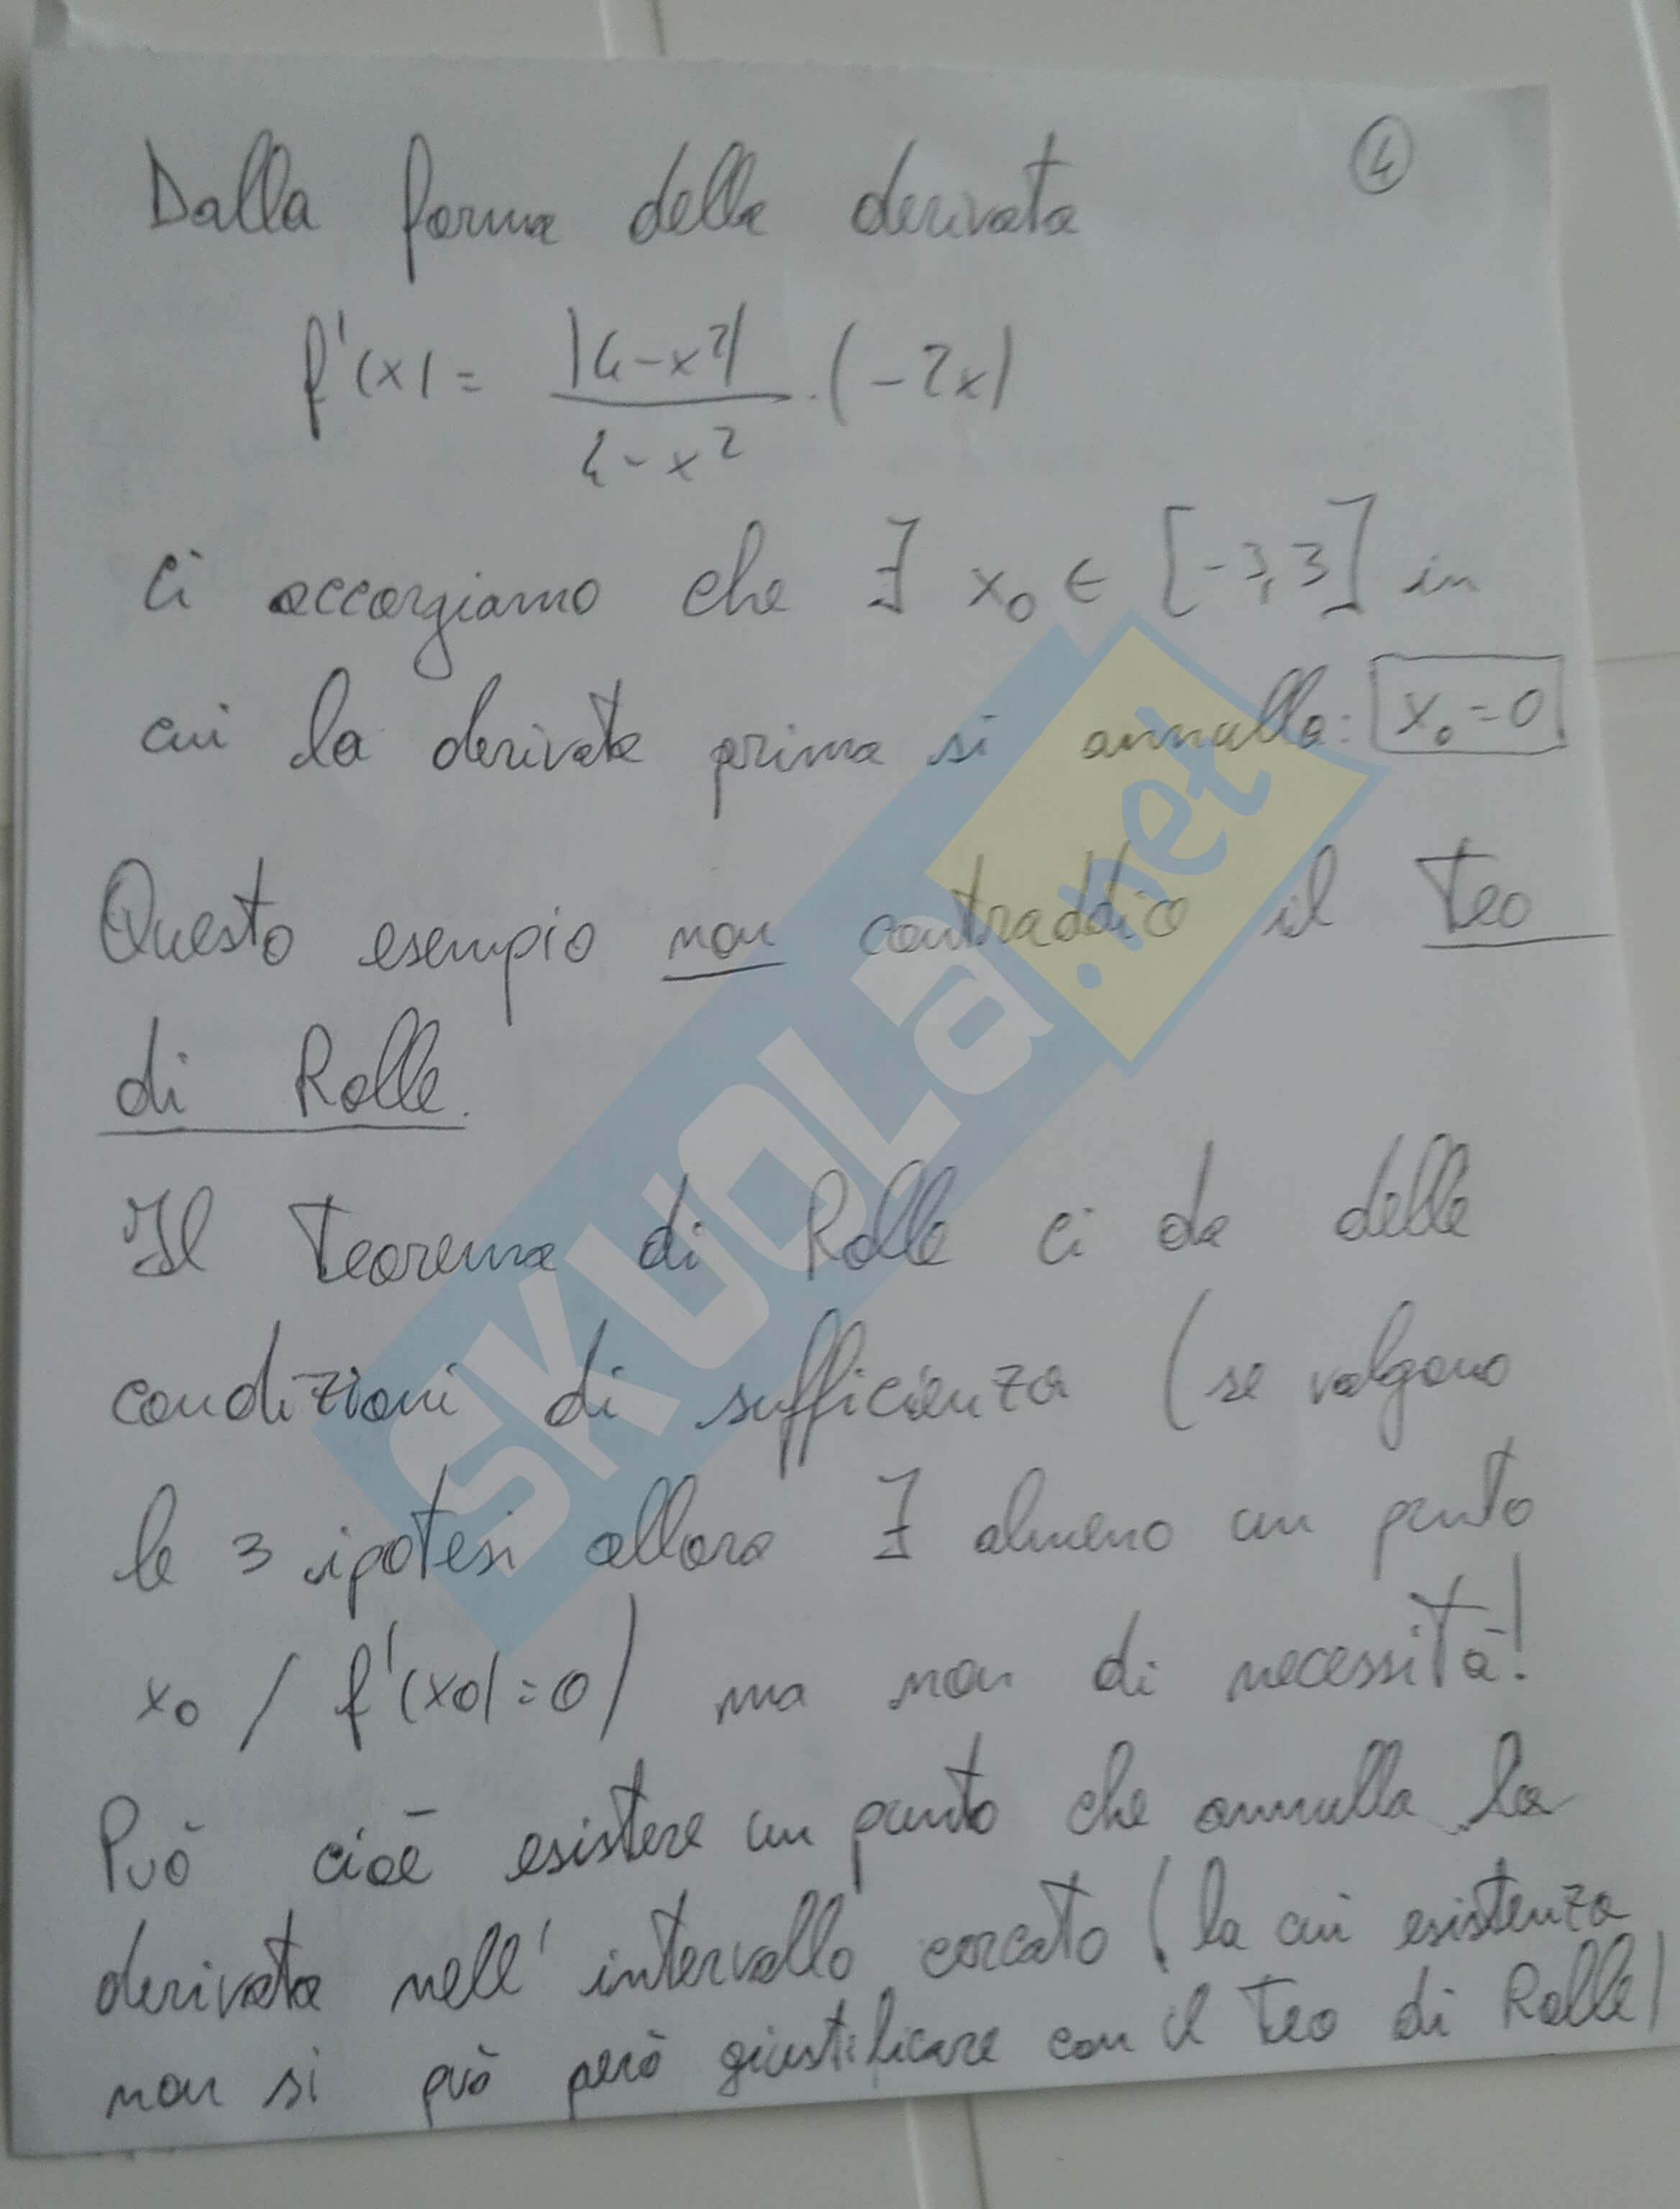 ④
Dalla forma della derivata
f'(x) = |4-x²| / 4-x² · (-2x)
ci accorgiamo che ∃ x₀ ∈ [-3,3] in
cui la derivata prima si annulla: x₀ = 0
Questo esempio non contraddice il Teo
di Rolle.
Il Teorema di Rolle ci da delle
condizioni di sufficienza (se valgono
le 3 ipotesi allora ∃ almeno un punto
x₀ / f'(x₀) = 0) ma non di necessità!
Può cioè esistere un punto che annulla la
derivata nell' intervallo cercato (la cui esistenza
non si può però giustificare con il Teo di Rolle)
SKUOLa.net